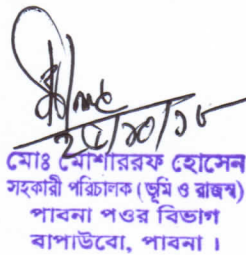 মোঃ মোশাররফ হোসেন
সহকারী পরিচালক (ভূমি ও রাজস্ব)
পাবনা পওর বিভাগ
বাপাউবো, পাবনা।